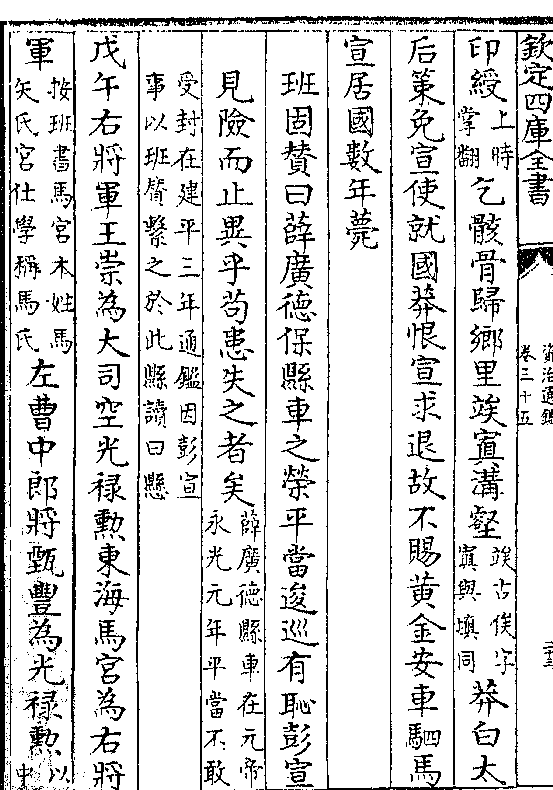 欽定四庫全書
資治通鑑
卷三十五
印綬上時掌翻乞骸骨歸鄉里竢窴溝壑竢古俟字窴與填同莽白太
后策免宣使就國莽恨宣求退故不賜黃金安車駟馬
宣居國數年薨
班固贊曰薛廣德保縣車之榮平當逡巡有恥彭宣
見險而止異乎苟患失之者矣薛廣德縣車在元帝永光元年平當不敢
受封在建平三年通鑑因彭宣事以班贊繫之於此縣讀曰懸
戊午右將軍王崇為大司空光禄勲東海馬宮為右將
軍按班書馬宮本姓馬矢氏宮仕學稱馬氏左曹中郎將甄豐為光禄勲以中